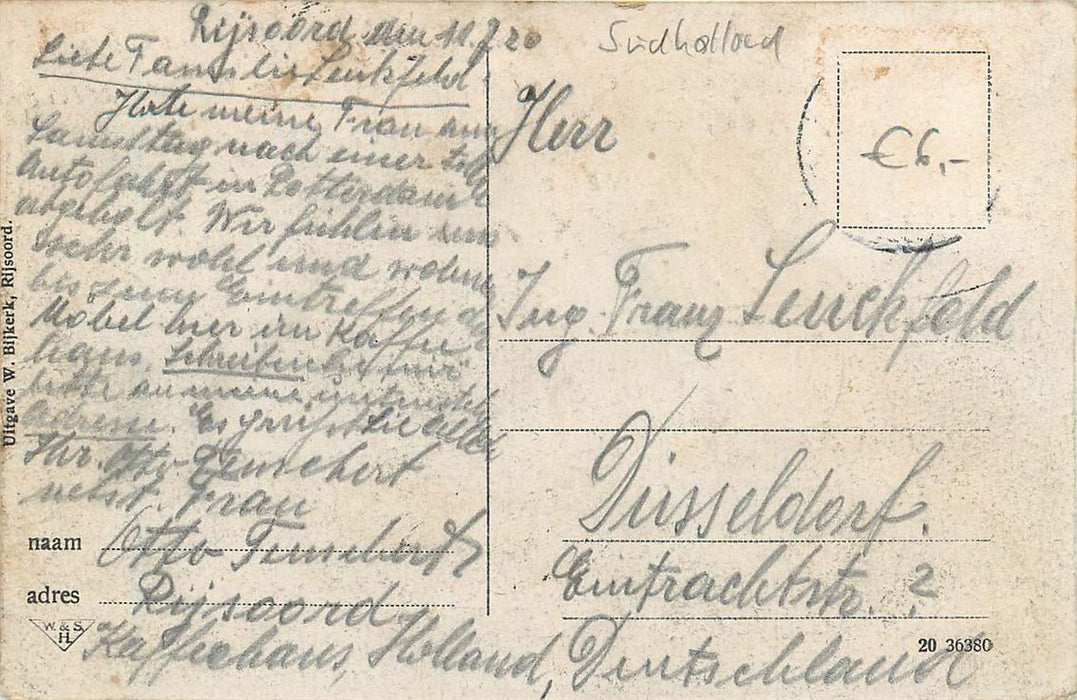 Rijsoord den 11.7.20
Liebe Familie Lenckfeld
Habe meine Frau am
Samstag nach einer
Autofahrt in Rotterdam
abgeholt. Wir fühlen uns
sehr wohl und wohnen
bis zum Eintreffen der
Möbel hier im Kaffee
haus. Schreiben Sie mir
bitte an meine untenstehd
Adresse. Es grüßt Sie alle
Ihr Otto
nebst. Frau
naam Otto
adres Rijsoord
Kaffeehaus, Holland,
W. & S.
H.
Uitgave W. Bijkerk, Rijsoord.
Südholland
€6,-
Herr
Ing. Franz Lenckfeld
Düsseldorf.
Eintrachtstr. ?
Deutschland
20 36380